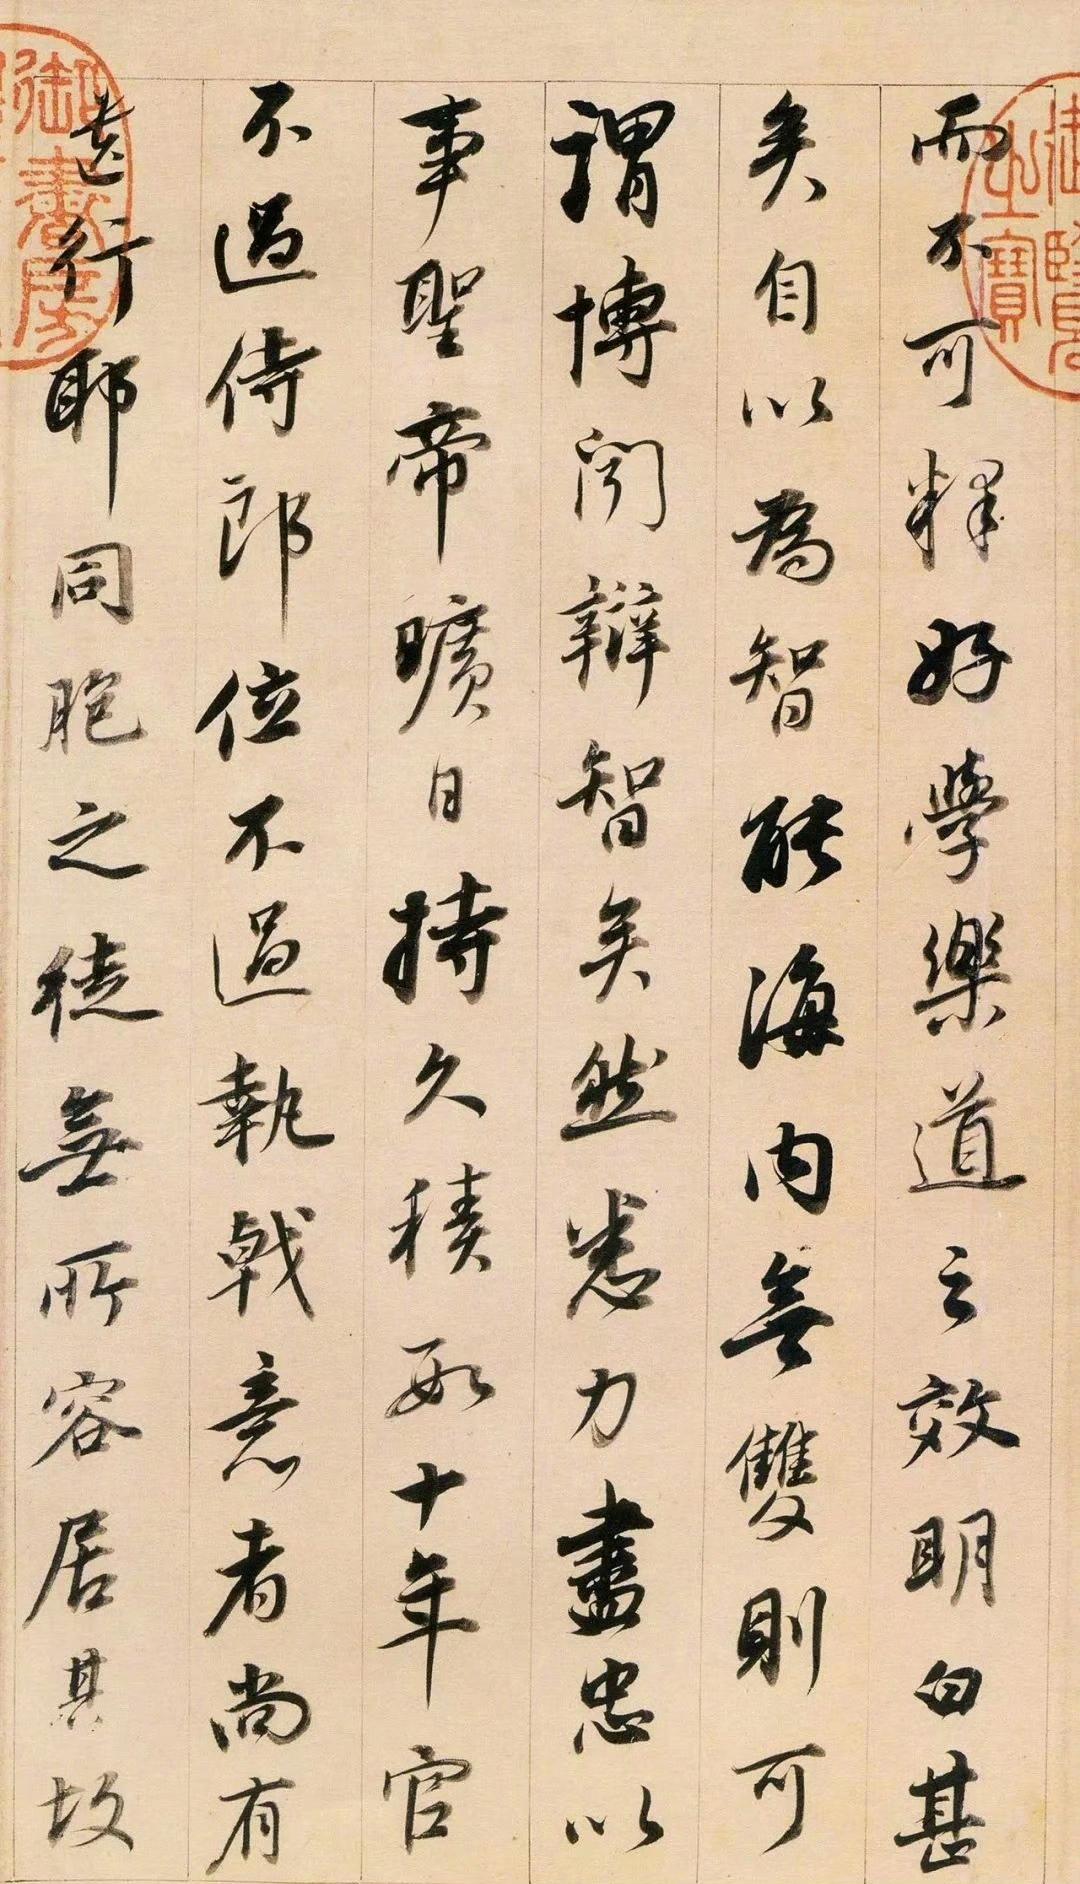 而不可釋好學樂道之效明白甚
矣自以為智能海內無雙則可
謂博聞辯智矣然悉力盡忠以
事聖帝曠日持久積數十年官
不過侍郎位不過執戟意者尚有
遺行耶同胞之徒無所容居其故
御覽
之寶
御書房